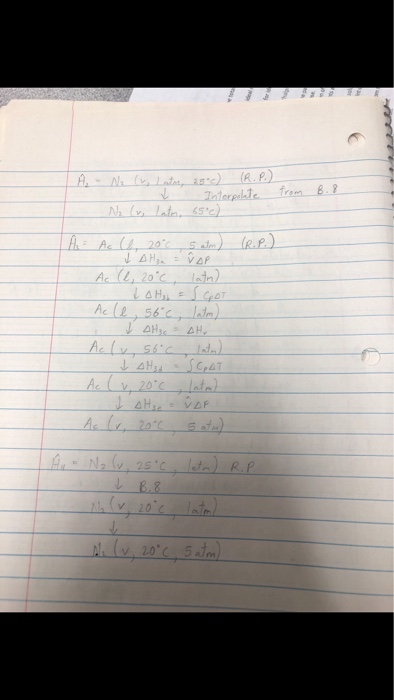 Ĥ₂ = N₂ (v, 1 atm, 25°C) (R.P.)
↓ Interpolate from B.8
N₂ (v, 1 atm, 65°C)
Ĥ₃ = Ac (l, 20°C, 5 atm) (R.P.)
↓ ΔH₃ₐ = V̂ΔP
Ac (l, 20°C, 1 atm)
↓ ΔH₃b = ∫ CpΔT
Ac (l, 56°C, 1 atm)
↓ ΔH₃c = ΔHv
Ac (v, 56°C, 1 atm)
↓ ΔH₃d = ∫CpΔT
Ac (v, 20°C, 1 atm)
↓ ΔH₃e = V̂ΔP
Ac (v, 20°C, 5 atm)
Ĥ₄ = N₂ (v, 25°C, 1 atm) R.P.
↓ B.8
N₂ (v, 20°C, 1 atm)
↓
N₂ (v, 20°C, 5 atm)